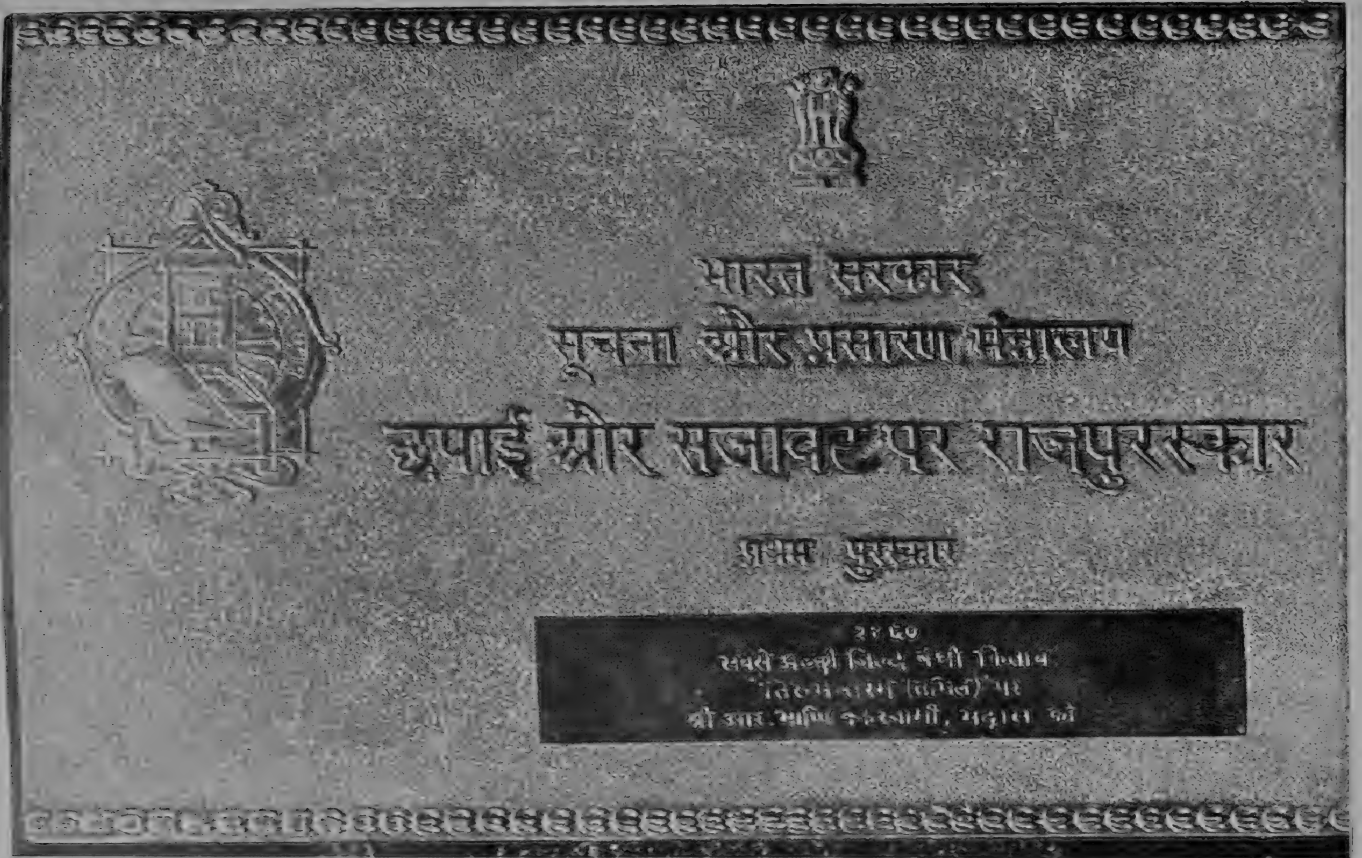 भारत सरकार
सूचना और प्रसारण मंत्रालय
छपाई और सजावट पर राजपुरस्कार
प्रथम पुरस्कार
सबसे अच्छी जिल्द बंधी किताब
(तमिल) पर
श्री आर. मद्रास को